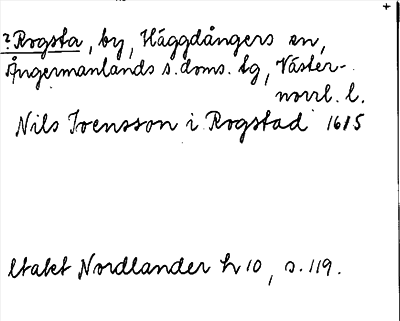 ? Rogsta, by, Häggdångers sn,
Ångermanlands s. doms. tg, Väster-
norrl. l.
Nils Ivensson i Rogstad 1615
Utakt Nordlander h 10, s. 119.